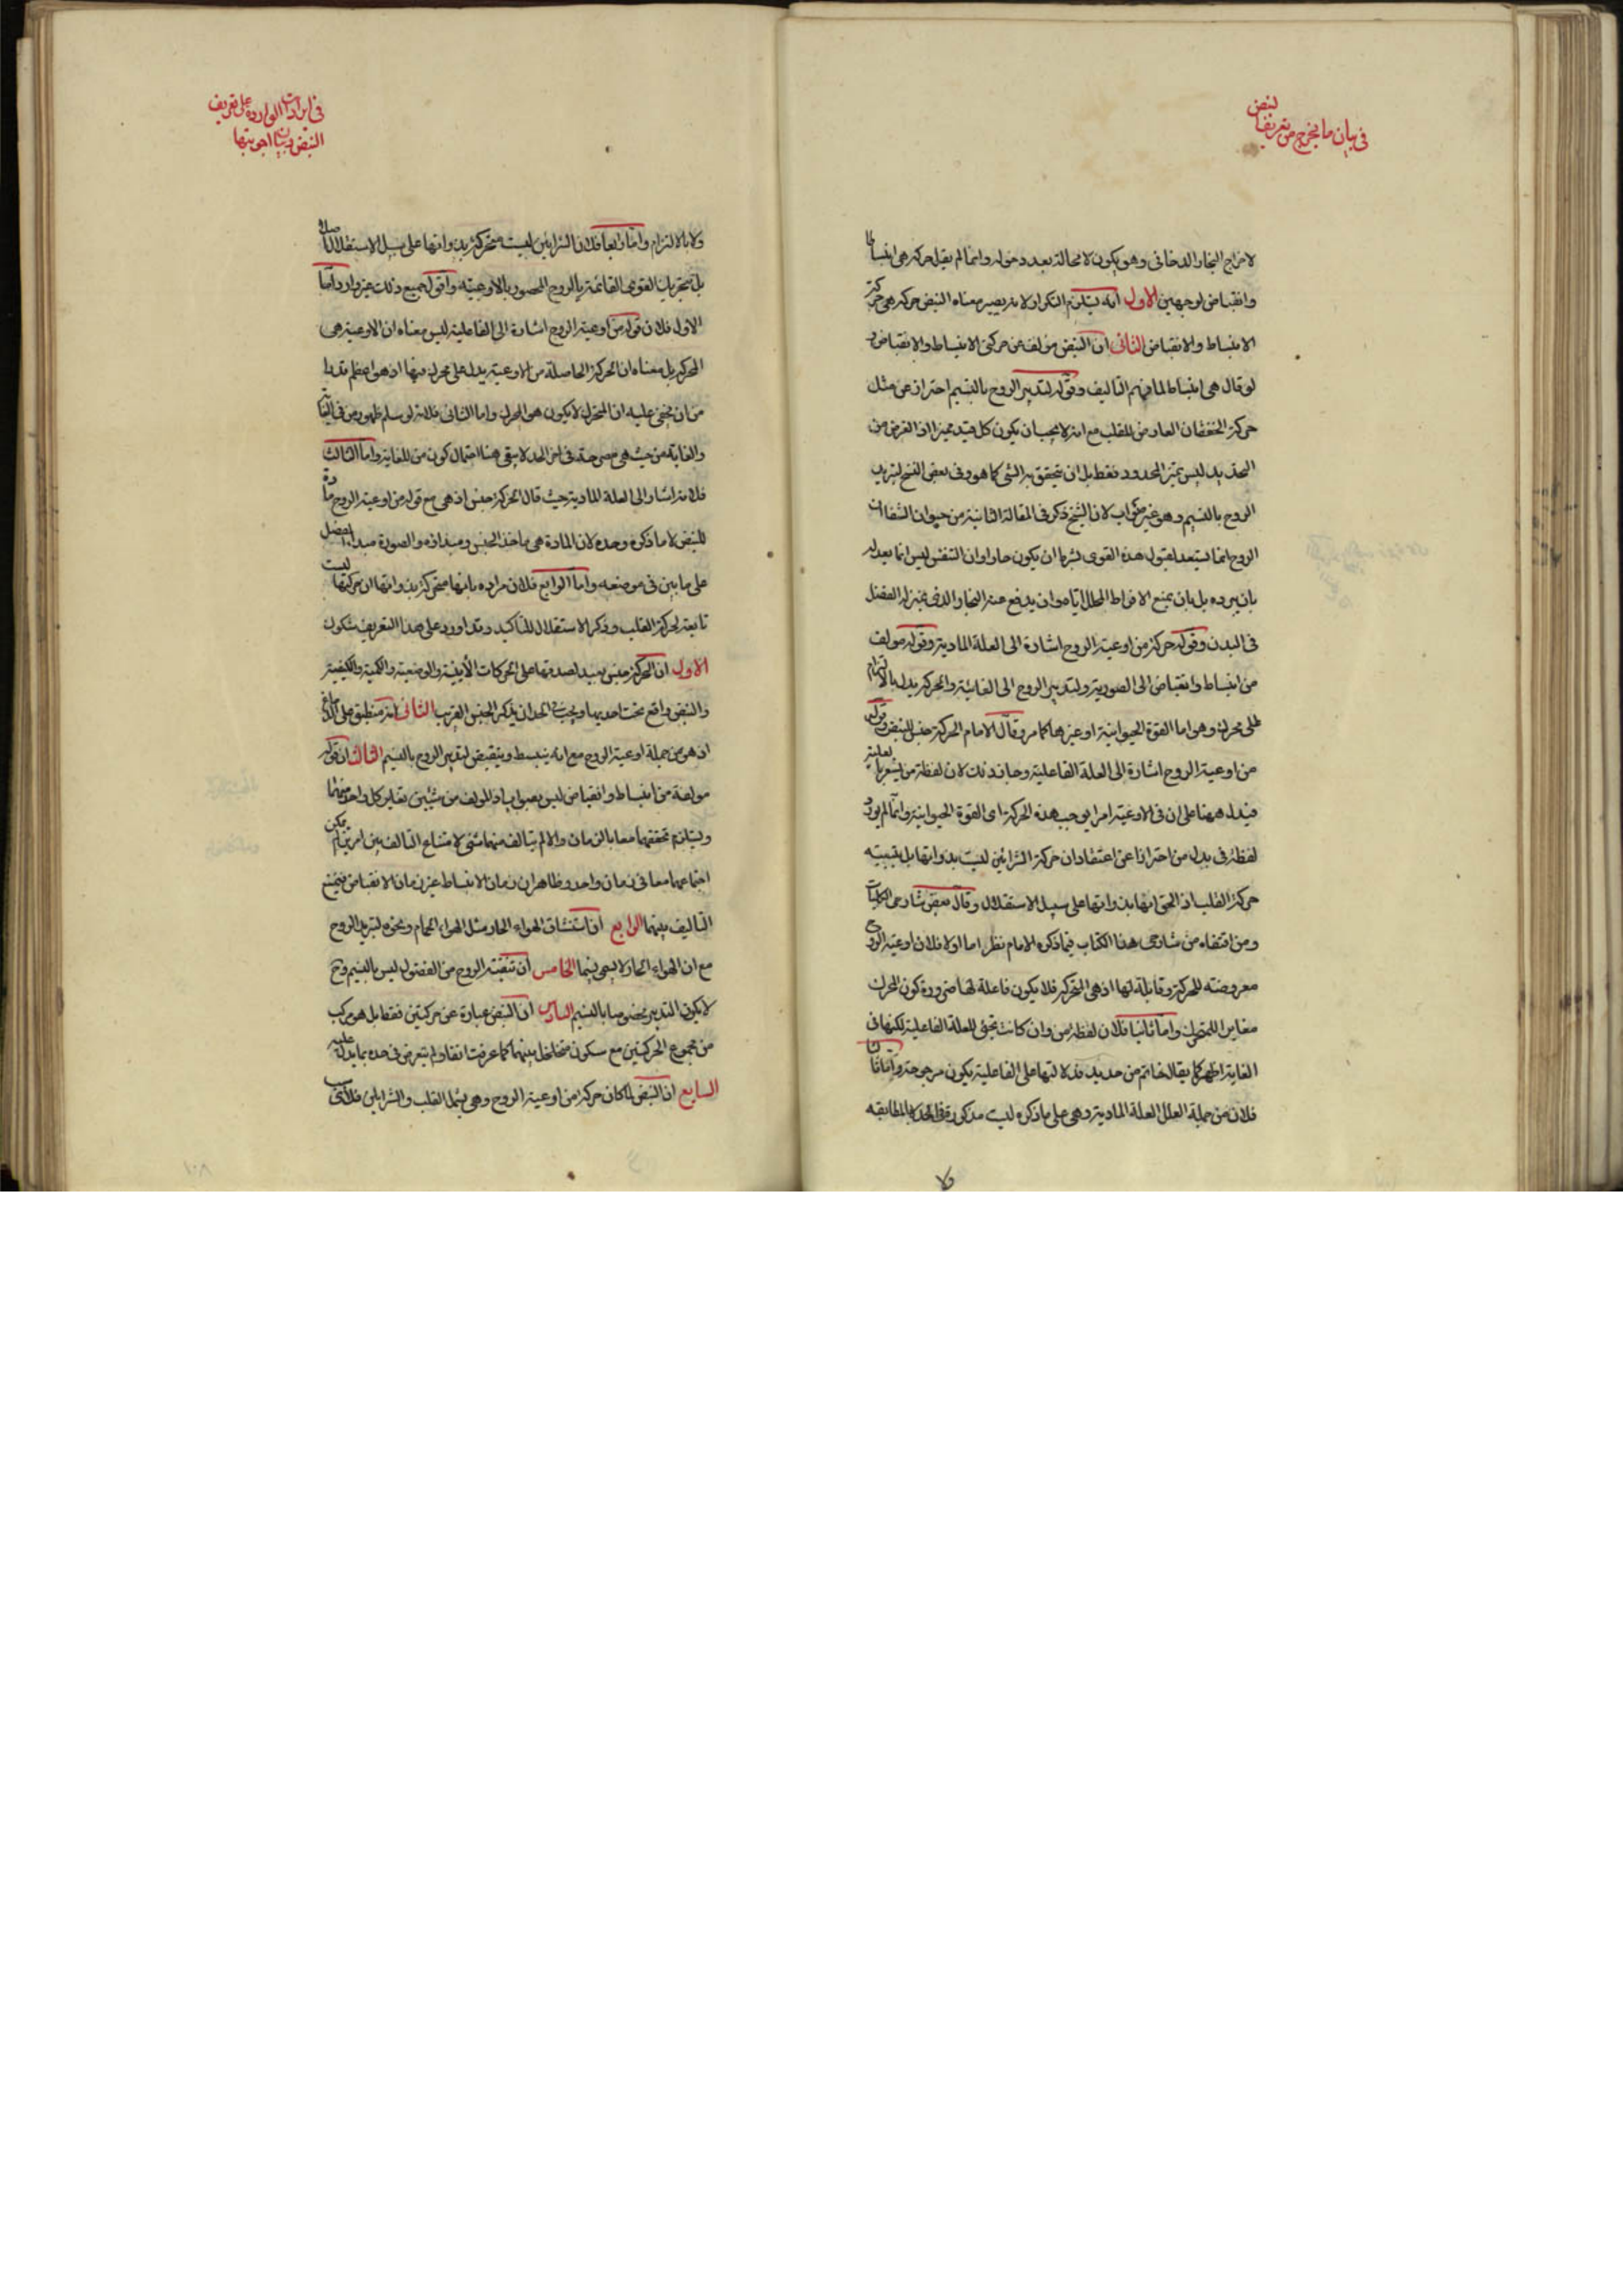 في بيان ما يخرج من تعريف
النبض
لاخراج البخار الدخانى وهو يكون لا محالة بعد دخوله وانما لم يقل حركة هى انبساط
وانقباض لوجهين الاول انه يستلزم التكرار لانه يصير معناه النبض حركة هى حركة
الانبساط والانقباض الثانى ان النبض مؤلف من حركتى الانبساط والانقباض و
لو قال هى انبساط لما فهم التاليف وقوله لتدبير الروح بالنسيم احتراز عن مثل
حركة الخفقان العارض للقلب مع انه لا يجب ان يكون كل قيد مميزا اذ الغرض من
التحديد ليس تميز المحدود فقط بل ان يتحقق به الشى كما هو وفى بعض النسخ لتبريد
الروح بالنسيم وهو غير صواب لان الشيخ ذكر فى المقالة الثانية من حيوان الشفا ان
الروح انما يستعد لقبول هذه القوى بشرط ان يكون حارا وان التنفس ليس انما يعدله
بان يبرده بل بان يمنع الافراط المحلل اياه وان يدفع عنه البخار الذى بمنزلة الفضل
فى البدن وقوله حركة من اوعية الروح اشارة الى العلة المادية وقوله مولفة
من انبساط وانقباض الى الصورية ولتدبير الروح الى الغائية والحركة يدل بالالتزام
على محرك وهو اما القوة الحيوانية او غيرها كما مر وقال الامام الحركة جنس للنبض وقوله
من اوعية الروح اشارة الى العلة الفاعلية وجاز ذلك لان لفظة من يشعر بالعلية
فيدل ههنا على ان فى الاوعية امرا يوجب هذه الحركة اى القوة الحيوانية وانما لم يورد
لفظة فى بدل من احترازا عن اعتقاد ان حركة الشرائين ليست بذواتها بل بتبعية
حركة القلب اذ الحق انها بذواتها على سبيل الاستقلال وقال بعض شارحى الكليات
ومن اقتفاه من شارحى هذا الكتاب فيما ذكره الامام نظر اما اولا فلان اوعية الروح
معروضة للحركة وقابلة لها اذ هى المتحركة فلا يكون فاعلة لها ضرورة كون المحرك
مغاير المتحرك واما ثانيا فلان لفظة من وان كانت تجئ للعلة الفاعلية لكنها فى
الغاية اظهر كما يقال خاتم من حديد فدلالتها على الفاعلية يكون مرجوحة واما ثالثا
فلان من جملة العلل العلة المادية وهى على ما ذكره ليست مذكورة فى الحد لا بالمطابقة
ولا
في ايرادات الواردة على تعريف
النبض وبيان اجوبتها
ولا بالالتزام واما رابعا فلان الشرائين ليست متحركة بذواتها على سبيل الاستقلال اصلا
بل بتحريك القوى القائمة بالروح المحصور بالاوعية واقول جميع ذلك غير وارد اما
الاول فلان قوله من اوعية الروح اشارة الى الفاعلية ليس معناه ان الاوعية هى
المحركة بل معناه ان الحركة الحاصلة من الاوعية يدل على محرك فيها اذ هو اعظم قدرا
من ان يخفى عليه ان المتحرك لا يكون هو المحرك واما الثانى فلانه لو سلم ظهور من فى الغاية
والغاية من حيث هى مصرحة فى اخر الحد لا يبقى هنا احتمال كون من للغاية واما الثالث
فلانه اشار الى العلة المادية حيث قال الحركة جنس اذ هى مع قوله من اوعية الروح مادة
للنبض لا ما ذكره وحده لان المادة هى ماخذ الجنس ومبداؤه والصورة مبدا الفصل
على ما بين فى موضعه واما الرابع فلان مراده بانها متحركة بذواتها ان حركتها ليست
تابعة لحركة القلب وذكر الاستقلال للتاكيد وقد اورد على هذا التعريف شكوك
الاول ان الحركة جنس بعيد لصدقها على الحركات الأينية والوضعية والكمية والكيفية
والنبض واقع تحت احديها ويجب فى الحد ان يذكر الجنس القريب الثانى انه منطبق على الدماغ
اذ هو من جملة اوعية الروح مع انه ينبسط وينقبض لتدبير الروح بالنسيم الثالث ان قوله
مولفة من انبساط وانقباض ليس بصواب اذ المولف من شيئين يغاير كل واحد منهما
ويستلزم تحققهما معا بالزمان والا لم يتالف منهما شئ لامتناع التالف بين امرين لم يكن
اجتماعهما معا فى زمان واحد وظاهر ان زمان الانبساط غير زمان الانقباض فيمتنع
التاليف بينهما الرابع ان استنشاق الهواء الحار مثل الهواء الحمام ونحوه لتبريد الروح
مع ان الهواء الحار لا يسمى نسيما الخامس ان تنقية الروح من الفضول ليس بالنسيم وح
لا يكون التدبير مخصوصا بالنسيم السادس ان النبض عبارة عن حركتين فقط بل هو مركب
من مجموع الحركتين مع سكون متخلخل بينهما كما عرفت انفا ولم يتعرض فى حده بما يدل عليه
السابع ان النبض لما كان حركة من اوعية الروح وهى يشمل القلب والشرايين فلا
١٠٨